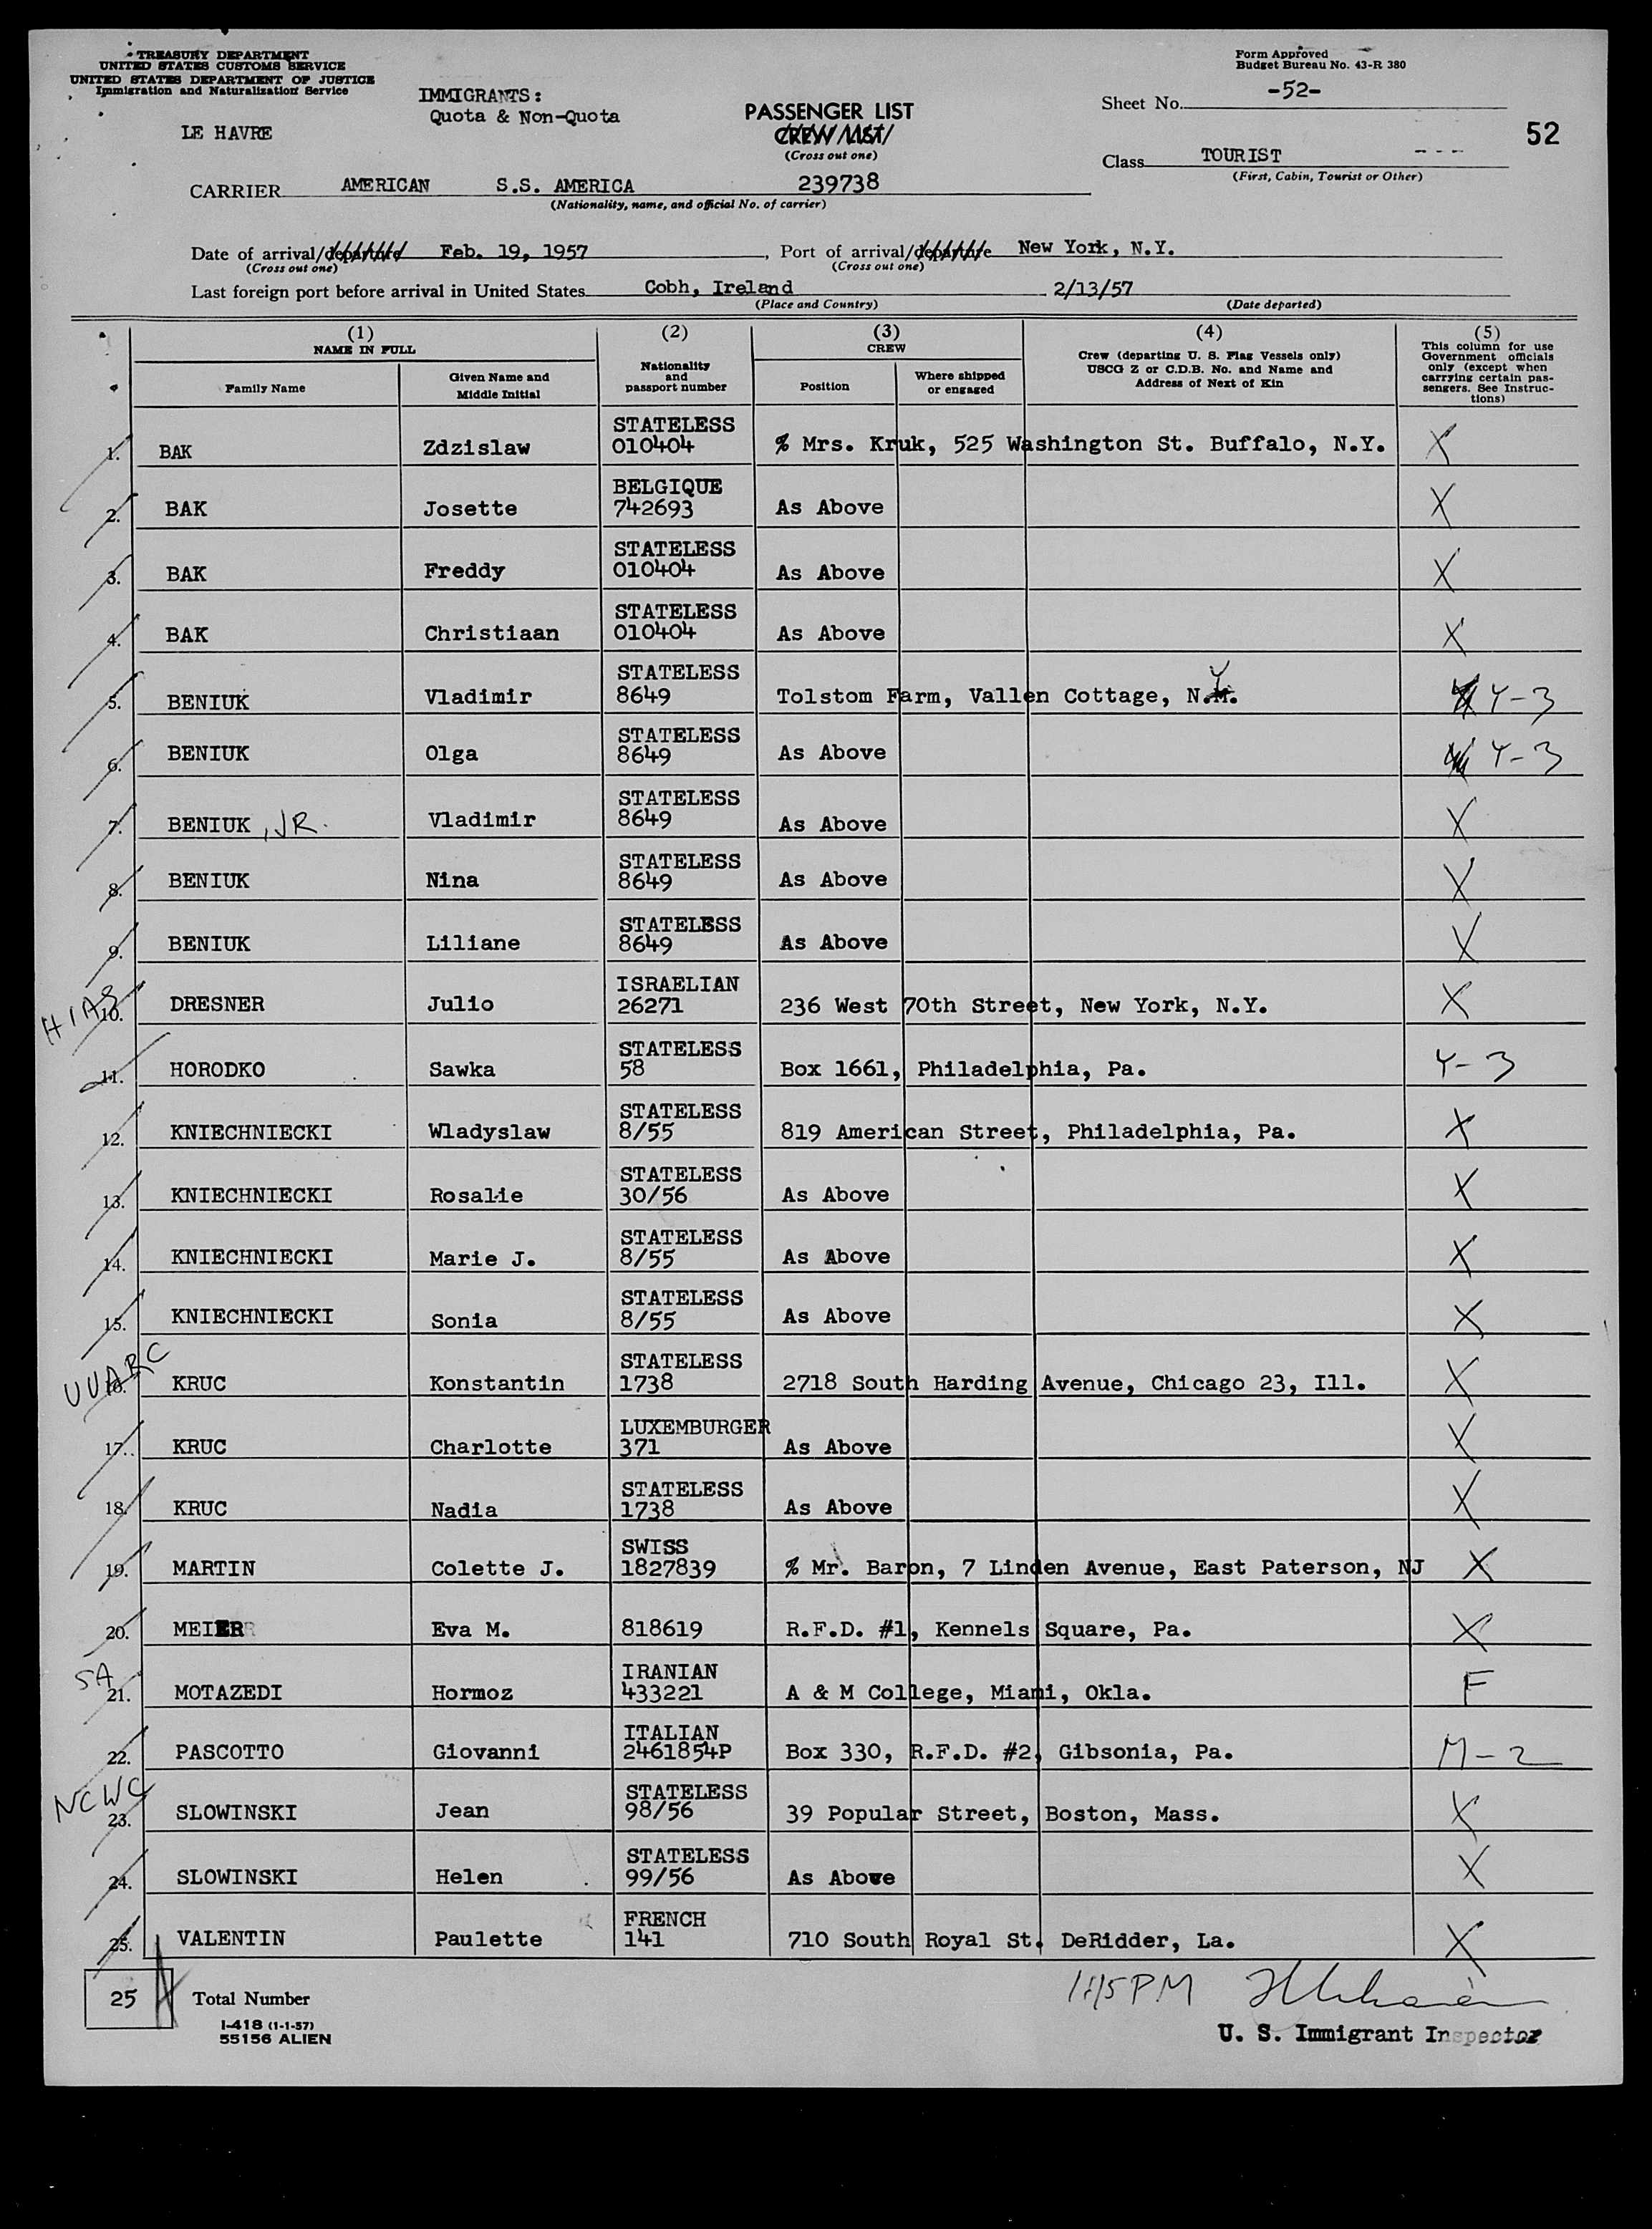 TREASURY DEPARTMENT
UNITED STATES CUSTOMS SERVICE
UNITED STATES DEPARTMENT OF JUSTICE
Immigration and Naturalization Service
Form Approved
Budget Bureau No. 43-R 380
IMMIGRANTS:
Quota & Non-Quota
LE HAVRE
PASSENGER LIST
CREW LIST
(Cross out one)
Sheet No. -52-
52
Class TOURIST ---
(First, Cabin, Tourist or Other)
CARRIER AMERICAN S.S. AMERICA 239738
(Nationality, name, and official No. of carrier)
Date of arrival/departure Feb. 19, 1957, Port of arrival/departure New York, N.Y.
(Cross out one) (Cross out one)
Last foreign port before arrival in United States Cobh, Ireland 2/13/57
(Place and Country) (Date departed)
(1) (2) (3) (4) (5)
NAME IN FULL
Family Name
Given Name and Middle Initial
Nationality and passport number
CREW
Position
Where shipped or engaged
Crew (departing U. S. Flag Vessels only)
USCG Z or C.D.B. No. and Name and
Address of Next of Kin
This column for use
Government officials
only (except when
carrying certain pas-
sengers. See Instruc-
tions)
1. BAK Zdzislaw STATELESS 010404 % Mrs. Kruk, 525 Washington St. Buffalo, N.Y. X
2. BAK Josette BELGIQUE 742693 As Above X
3. BAK Freddy STATELESS 010404 As Above X
4. BAK Christiaan STATELESS 010404 As Above X
5. BENIUK Vladimir STATELESS 8649 Tolstom Farm, Vallen Cottage, N.Y. Y-3
6. BENIUK Olga STATELESS 8649 As Above Y-3
7. BENIUK, JR. Vladimir STATELESS 8649 As Above X
8. BENIUK Nina STATELESS 8649 As Above X
9. BENIUK Liliane STATELESS 8649 As Above X
HIAS
10. DRESNER Julio ISRAELIAN 26271 236 West 70th Street, New York, N.Y. X
11. HORODKO Sawka STATELESS 58 Box 1661, Philadelphia, Pa. Y-3
12. KNIECHNIECKI Wladyslaw STATELESS 8/55 819 American Street, Philadelphia, Pa. X
13. KNIECHNIECKI Rosalie STATELESS 30/56 As Above X
14. KNIECHNIECKI Marie J. STATELESS 8/55 As Above X
15. KNIECHNIECKI Sonia STATELESS 8/55 As Above X
UUARC
16. KRUC Konstantin STATELESS 1738 2718 South Harding Avenue, Chicago 23, Ill. X
17. KRUC Charlotte LUXEMBURGER 371 As Above X
18. KRUC Nadia STATELESS 1738 As Above X
19. MARTIN Colette J. SWISS 1827839 % Mr. Baron, 7 Linden Avenue, East Paterson, NJ X
20. MEIER Eva M. 818619 R.F.D. #1, Kennels Square, Pa. X
SA
21. MOTAZEDI Hormoz IRANIAN 433221 A & M College, Miami, Okla. F
22. PASCOTTO Giovanni ITALIAN 2461854P Box 330, R.F.D. #2, Gibsonia, Pa. M-2
NCWC
23. SLOWINSKI Jean STATELESS 98/56 39 Popular Street, Boston, Mass. X
24. SLOWINSKI Helen STATELESS 99/56 As Above X
25. VALENTIN Paulette FRENCH 141 710 South Royal St. DeRidder, La. X
25 Total Number
I-418 (1-1-57)
55156 ALIEN
1:15 PM
U. S. Immigrant Inspector